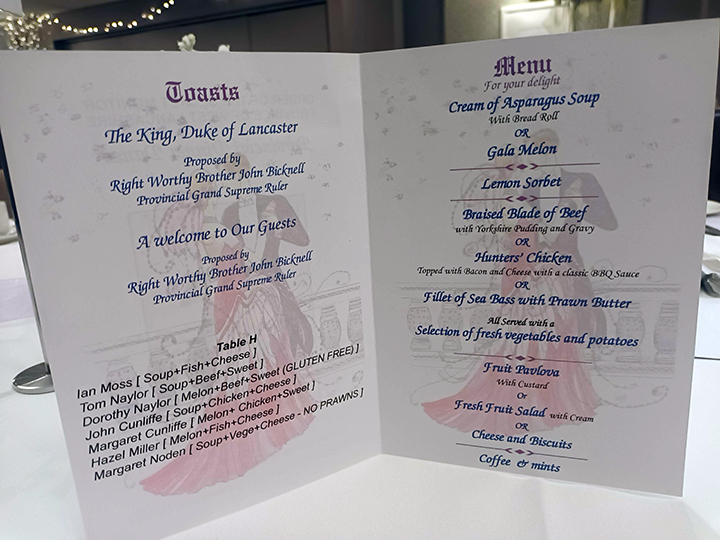 Toasts
The King, Duke of Lancaster
Proposed by
Right Worthy Brother John Bicknell
Provincial Grand Supreme Ruler
A welcome to Our Guests
Proposed by
Right Worthy Brother John Bicknell
Provincial Grand Supreme Ruler
Table H
Ian Moss [ Soup+Fish+Cheese ]
Tom Naylor [ Soup+Beef+Sweet ]
Dorothy Naylor [ Melon+Beef+Sweet (GLUTEN FREE) ]
John Cunliffe [ Soup+Chicken+Cheese ]
Margaret Cunliffe [ Melon+ Chicken+Sweet ]
Hazel Miller [ Melon+Fish+Cheese ]
Margaret Noden [ Soup+Vege+Cheese - NO PRAWNS ]
Menu
For your delight
Cream of Asparagus Soup
With Bread Roll
OR
Gala Melon
Lemon Sorbet
Braised Blade of Beef
with Yorkshire Pudding and Gravy
OR
Hunters' Chicken
Topped with Bacon and Cheese with a classic BBQ Sauce
OR
Fillet of Sea Bass with Prawn Butter
All Served with a
Selection of fresh vegetables and potatoes
Fruit Pavlova
With Custard
Or
Fresh Fruit Salad with Cream
OR
Cheese and Biscuits
Coffee & mints